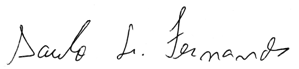 Saulo L. Fernands